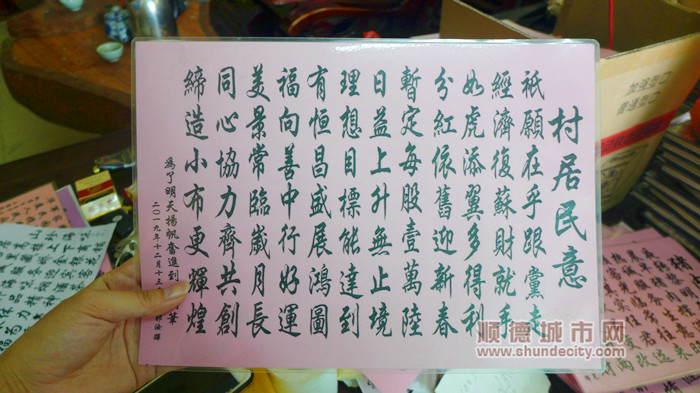 村居民意
祇願在乎跟黨走
經濟復蘇財就手
如虎添翼多得利
分紅依舊迎新春
暫定每股壹萬陸
日益上升無止境
理想目標能達到
有恒昌盛展鴻圖
福向善中行好運
美景常臨歲月長
同心協力齊共創
締造小布更輝煌
為了明天揚帆奮進到 筆
二〇一九年十二月十三
加强型
普通型
顺德城市网
www.shundecity.com